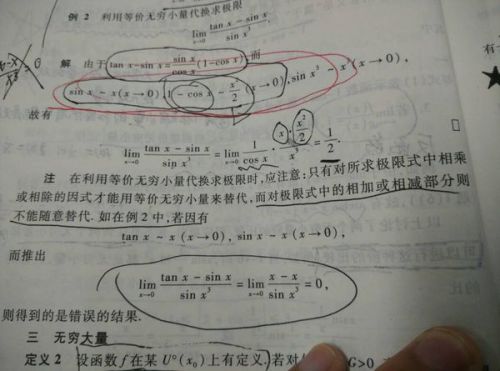 例 2 利用等价无穷小量代换求极限
lim x→0 (tan x − sin x)/sin x³.
解 由于 tan x − sin x = (sin x/cos x)(1 − cos x), 而
sin x ~ x (x→0), 1 − cos x ~ x²/2 (x→0), sin x³ ~ x³ (x→0),
故有
lim x→0 (tan x − sin x)/sin x³ = lim x→0 1/cos x · (x · x²/2)/x³ = 1/2.
注 在利用等价无穷小量代换求极限时,应注意:只有对所求极限式中相乘
或相除的因式才能用等价无穷小量来替代,而对极限式中的相加或相减部分则
不能随意替代.如在例 2 中,若因有
tan x ~ x (x→0), sin x ~ x (x→0),
而推出
lim x→0 (tan x − sin x)/sin x³ = lim x→0 (x − x)/sin x³ = 0,
则得到的是错误的结果.
三 无穷大量
定义 2 设函数 f 在某 U°(x₀) 上有定义.若对 G>0